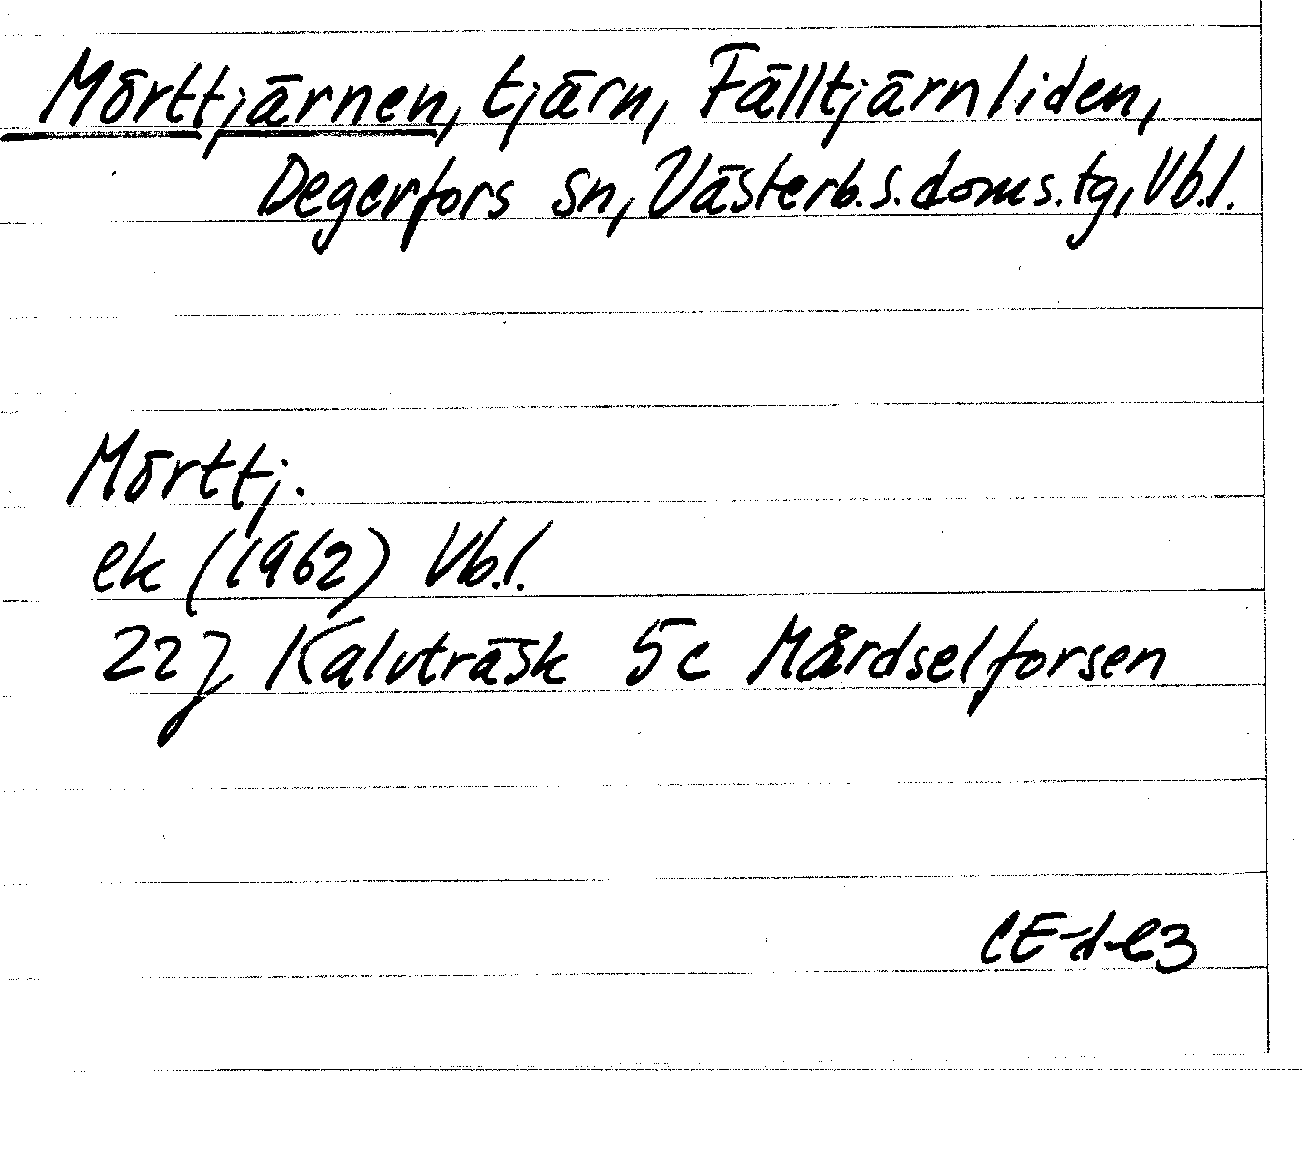 Mörttjärnen, tjärn, Fälltjärnliden,
Degerfors sn, Västerb.s.doms.tg, Vb.l.
Mörttj.
ek (1962) Vb.l.
22J Kalvträsk 5c Mårdselforsen